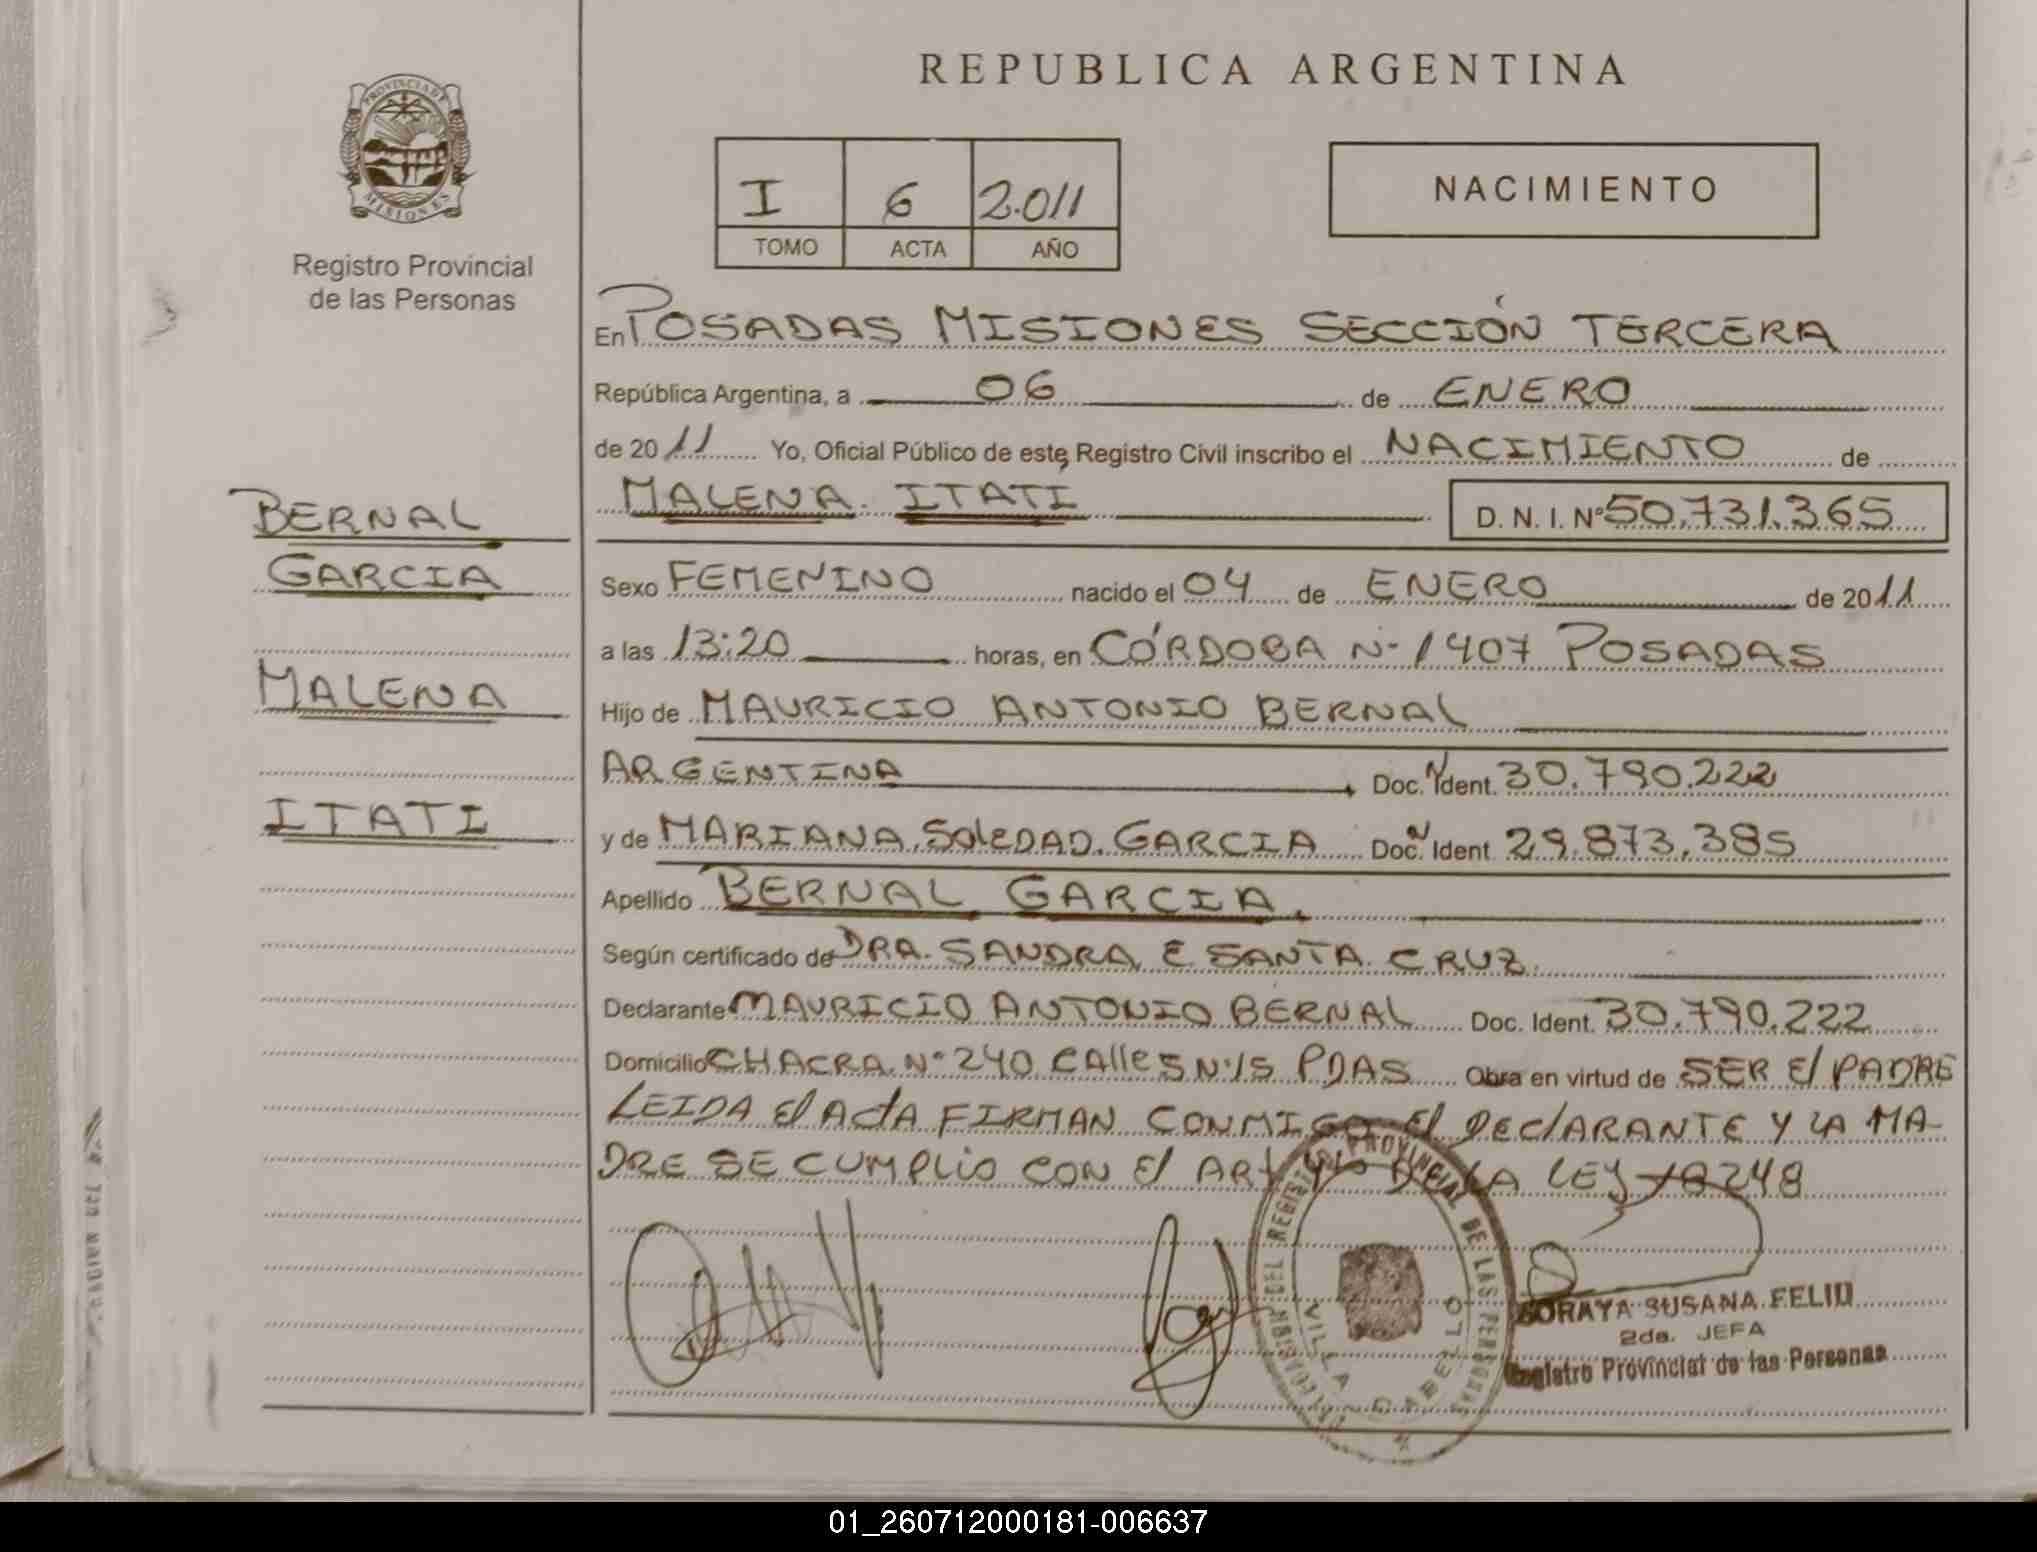 REPUBLICA ARGENTINA
PROVINCIA DE
MISIONES
Registro Provincial
de las Personas
I 6 2.011
TOMO ACTA AÑO
NACIMIENTO
En POSADAS MISIONES SECCIÓN TERCERA
República Argentina, a 06 de ENERO
de 2011 Yo, Oficial Público de este Registro Civil inscribo el NACIMIENTO de
MALENA ITATI D. N. I. Nº 50.731.365
BERNAL
GARCIA
MALENA
ITATI
Sexo FEMENINO nacido el 04 de ENERO de 2011
a las 13:20 horas, en CÓRDOBA Nº 1407 POSADAS
Hijo de MAURICIO ANTONIO BERNAL
ARGENTINA Doc. Ident. 30.790.222
y de MARIANA SOlEDAD GARCIA Doc. Ident 29.873.385
Apellido BERNAL GARCIA
Según certificado de DRA. SANDRA E SANTA CRUZ
Declarante MAURICIO ANTONIO BERNAL Doc. Ident. 30.790.222
Domicilio CHACRA Nº 240 CAlleS Nº 15 PDAS Obra en virtud de SER El PADRE
LEIDA El ActA FIRMAN CONMIGO El DEClARANTE Y LA MA-
DRE SE CUMPLIO CON El ART DE LA LEY 18248
DEL REGISTRO PROVINCIAL DE LAS PERSONAS
VILLA CABELLO
SORAYA SUSANA FELIU
2da. JEFA
Registro Provincial de las Personas
01_260712000181-006637